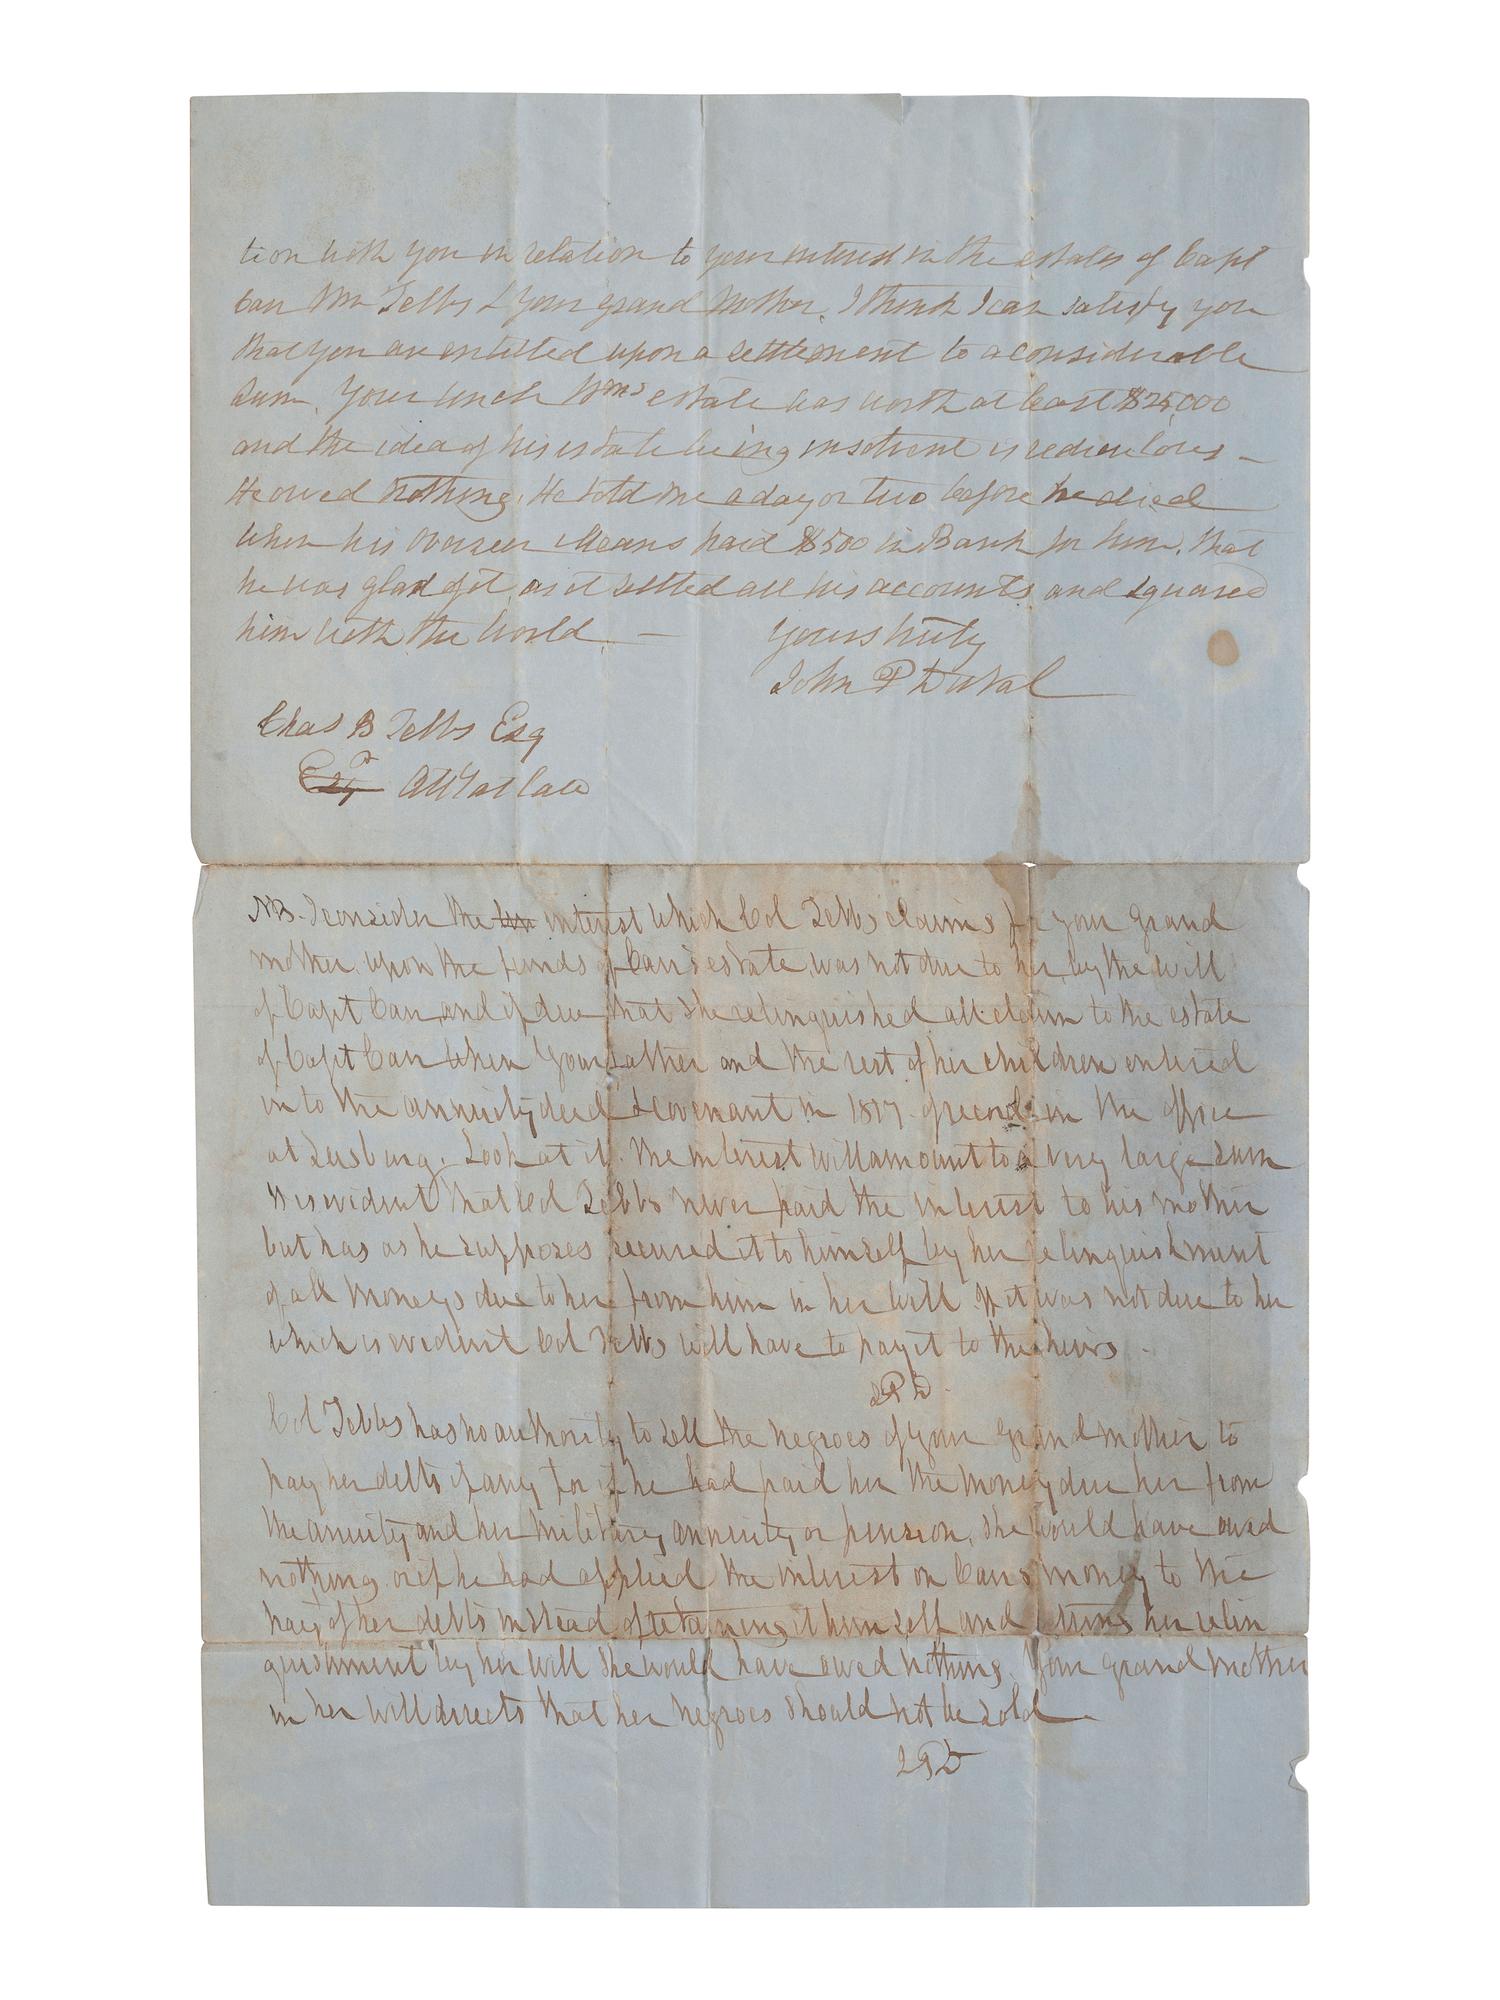 tion with you in relation to your interest in the estates of Capt
Carr Wm Tebbs & your grand Mother. I think I can satisfy you
that you are entitled upon a settlement to a considerable
Sum. Your Uncle Wms estate was worth at least $25,000
and the idea of his estate being insolvent is rediculous –
He owed nothing. He told me a day or two before he died
when his overseer Means paid $500 in Bank for him, that
he was glad of it, as it settled all his accounts and squared
him with the World. —
Yours truly
John P Duval
Chas B Tebbs Esq
Esqr Atty at law
NB. I consider the interest which Col Tebbs claims for your grand
mother, upon the funds of Carr's estate, was not due to her, by the will
of Capt Carr, and if due that she relinquished all claim to the estate
of Capt Carr when Your father and the rest of her children entered
in to the annuity deed & covenant in 1817 of record in the office
at Leesburg. Look at it. The interest will amount to a very large sum
It is evident that Col Tebbs never paid the interest to his mother
but has as he supposes secured it to himself by her relinquishment
of all moneys due to her from him in her Will. If it was not due to her
which is evident Col Tebbs will have to pay it to the heirs.
JPD.
Col Tebbs has no authority to sell the negroes of your grand mother to
pay her debts if any for if he had paid her the money due her from
the annuity and her military annuity or pension, she would have owed
nothing or if he had applied the interest on Carrs money to the
pay of her debts instead of retaining it himself and getting her relin
quishment by her Will she would have owed nothing. Your grand mother
in her Will directs that her negroes should not be sold
JPD